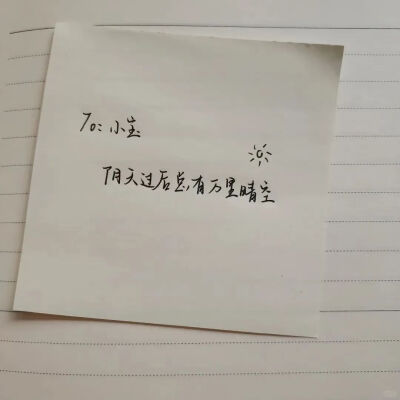 To: 小宝
阴天过后总有万里晴空